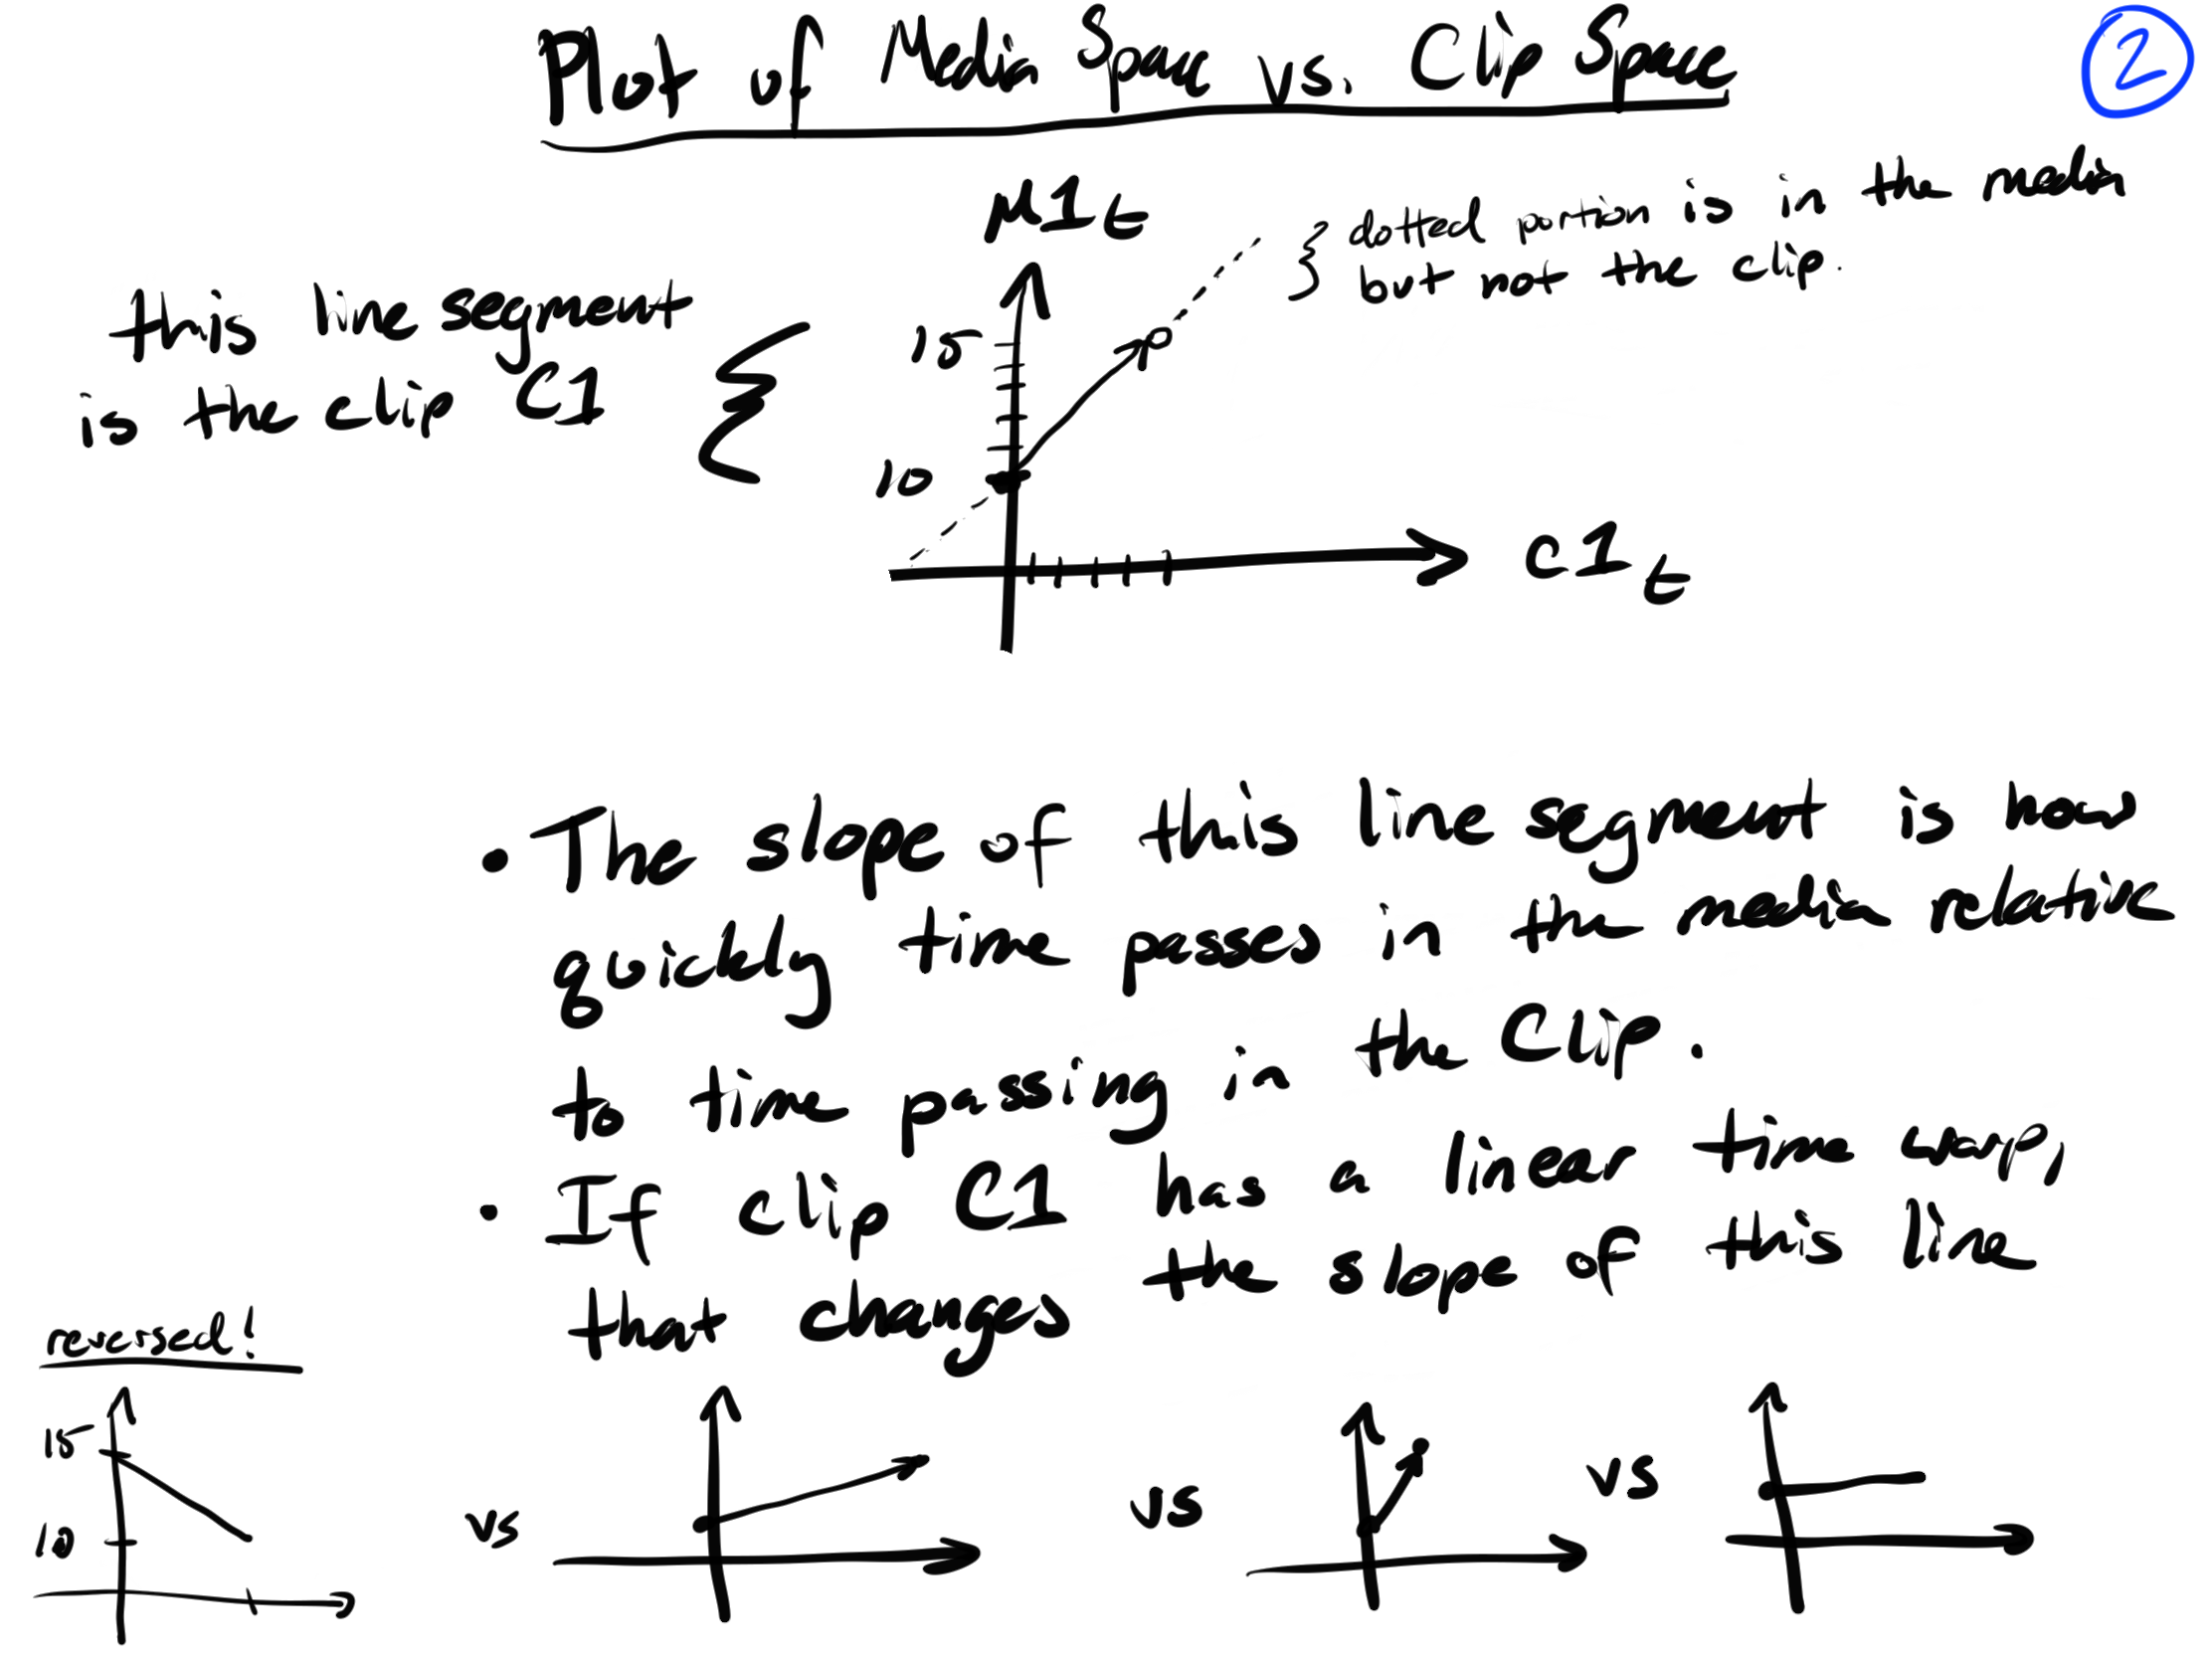 Plot of Media Space vs. Clip Space
2
M1t
dotted portion is in the media
but not the clip.
this line segment
is the clip C1
15
10
C1t
• The slope of this line segment is how
quickly time passes in the media relative
to time passing in the Clip.
• If clip C1 has a linear time warp,
that changes the slope of this line
reversed!
15
10
vs
vs
vs